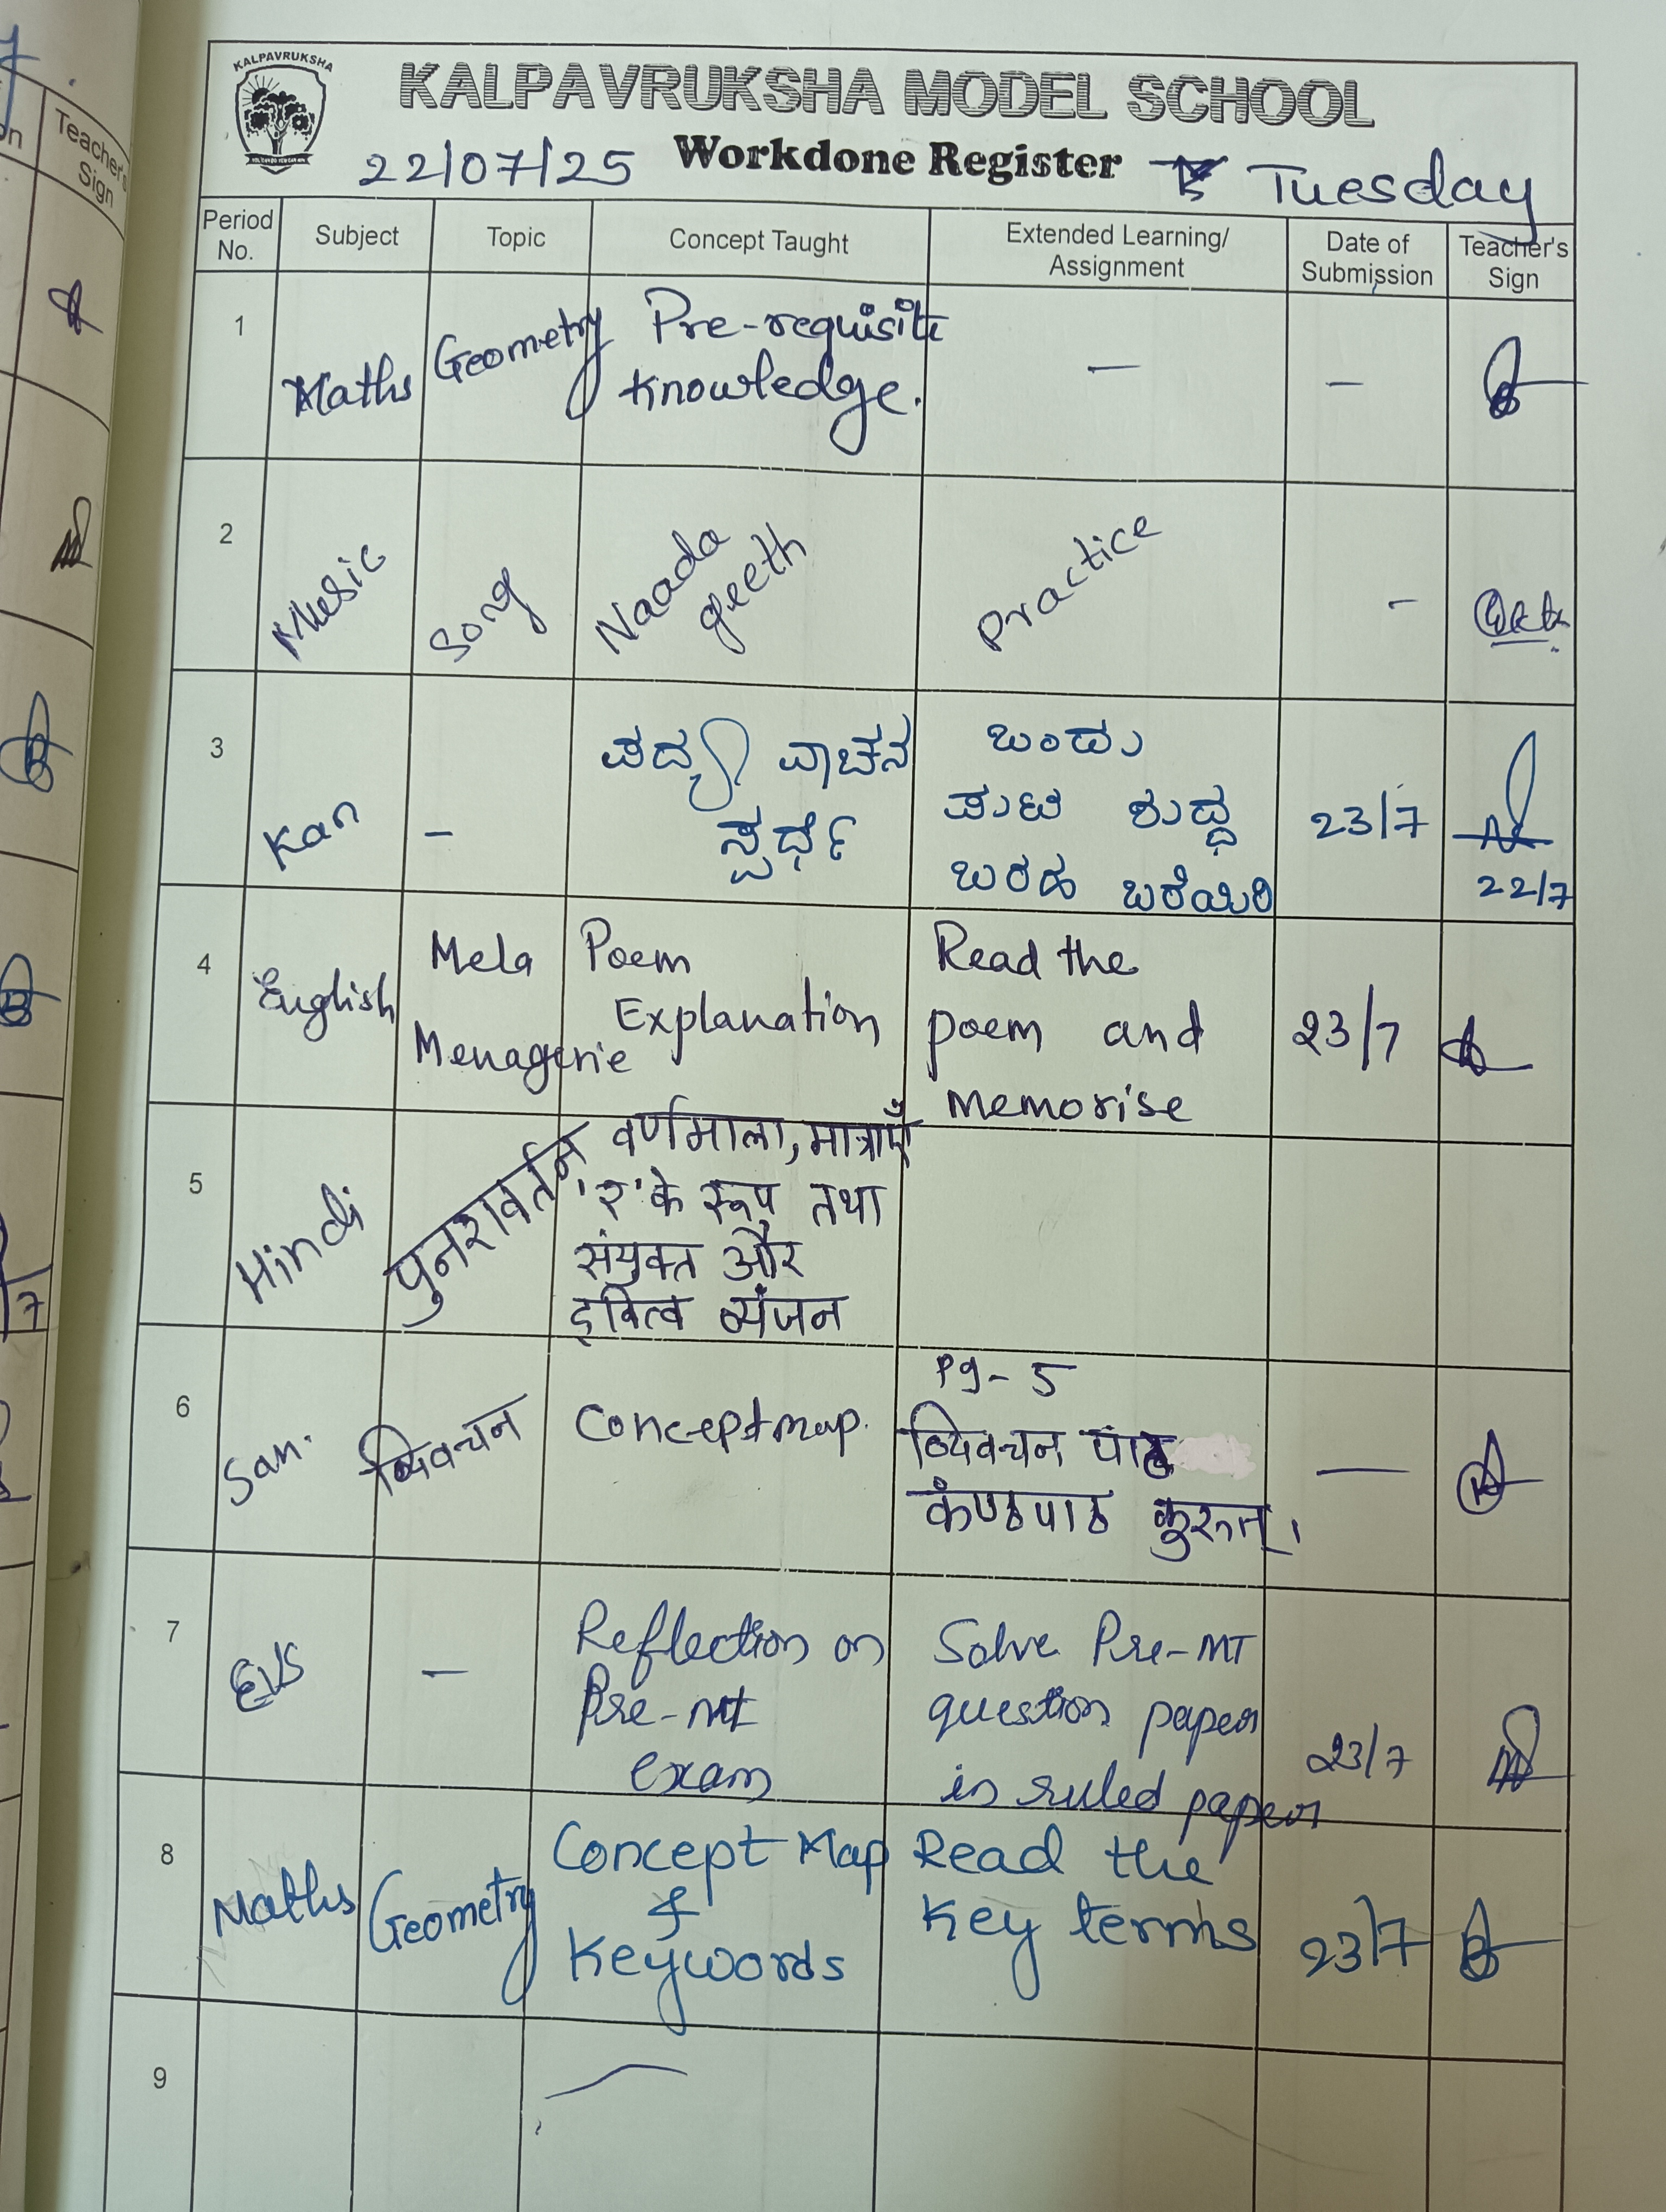 KALPAVRUKSHA
KALPAVRUKSHA MODEL SCHOOL
Workdone Register
22/07/25
Tuesday
Teacher's
Sign
Period No.
Subject
Topic
Concept Taught
Extended Learning/ Assignment
Date of Submission
Teacher's Sign
1
Maths
Geometry
Pre-requisite
Knowledge.
—
—
2
Music
Song
Naada
geeth
Practice
-
3
Kan
—
ಪದ್ಯ ವಾಚನ
ಸ್ಪರ್ಧೆ
ಒಂದು
ಪುಟ ಶುದ್ಧ
ಬರಹ ಬರೆಯಿರಿ
23/7
22/7
4
English
Mela
Menagerie
Poem
Explanation
Read the
poem and
memorise
23/7
5
Hindi
पुनरावर्तन
वर्णमाला, मात्राएँ
'र' के रूप तथा
संयुक्त और
द्वित्व व्यंजन
6
San.
Concept map.
Pg - 5
कंण्ठपाठ
—
7
EVS
—
Reflection on
Pre-MT
exam
Solve Pre-MT
question paper
in ruled paper
23/7
8
Maths
Geometry
Concept Map
&
Keywords
Read the
Key terms
23/7
9